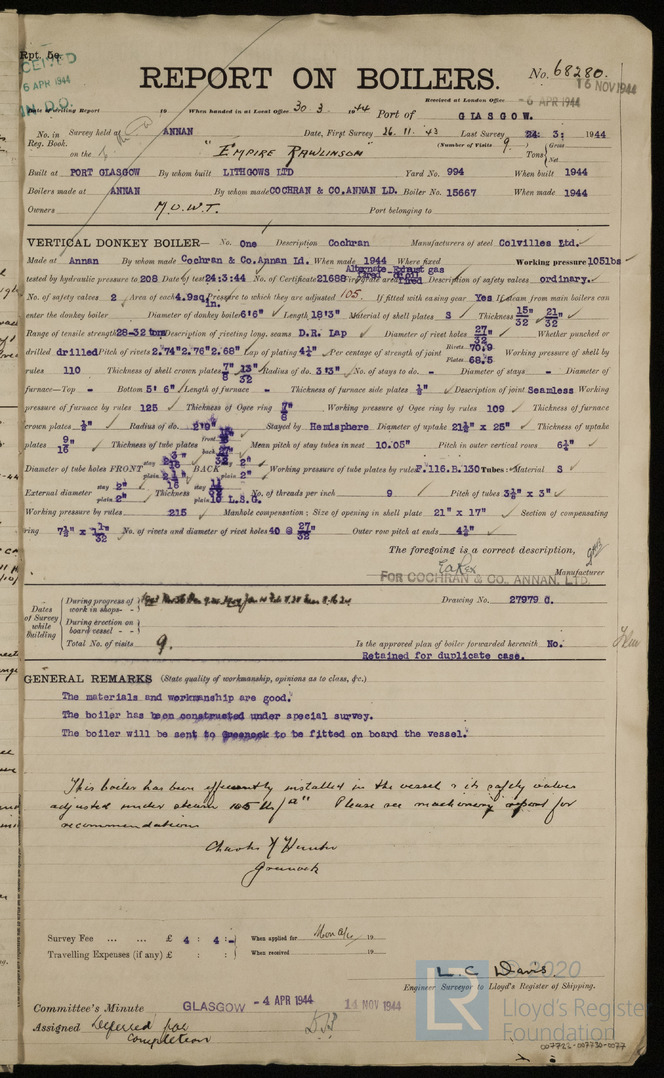 Rpt. 5c.
6 APR 1944
REPORT ON BOILERS.
No. 68280.
16 NOV 1944
Received at London Office - 6 APR 1944
Date of writing Report 19 When handed in at Local Office 30 3. 1944 Port of GLASGOW.
No. in Reg. Book. Survey held at ANNAN Date, First Survey 26.11.43 Last Survey 24: 3: 1944
on the "EMPIRE RAWLINSON" (Number of Visits 9. ) Tons Gross Net
Built at PORT GLASGOW By whom built LITHGOWS LTD Yard No. 994 When built 1944
Boilers made at ANNAN By whom made COCHRAN & CO. ANNAN LD. Boiler No. 15667 When made 1944
Owners M.O.W.T. Port belonging to
VERTICAL DONKEY BOILER— No. One Description Cochran Manufacturers of steel Colvilles Ltd.
Made at Annan By whom made Cochran & Co. Annan Ld. When made 1944 Where fixed Working pressure 105lbs
tested by hydraulic pressure to 208 Date of test 24:3:44 No. of Certificate 21688 Fire grate area Alternate Exhaust gas Fired Oil Fired Description of safety valves ordinary.
No. of safety valves 2 Area of each 4.9sq.in. Pressure to which they are adjusted 105. If fitted with easing gear Yes If steam from main boilers can
enter the donkey boiler Diameter of donkey boiler 6'6" Length 18'3" Material of shell plates S Thickness 15/32 21/32"
Range of tensile strength 28-32 tons Description of riveting long. seams D.R. Lap Diameter of rivet holes 27/32" Whether punched or
drilled drilled Pitch of rivets 2.74"2.76"2.68" Lap of plating 4¼" Per centage of strength of joint Rivets 70.9 Plates 68.5 Working pressure of shell by
rules 110 Thickness of shell crown plates 7/8" 13/32" Radius of do. 3'3" No. of stays to do. - Diameter of stays - Diameter of
furnace—Top - Bottom 5' 6" Length of furnace - Thickness of furnace side plates ½" Description of joint Seamless Working
pressure of furnace by rules 125 Thickness of Ogee ring 7/8" Working pressure of Ogee ring by rules 109 Thickness of furnace
crown plates ½" Radius of do. 2'9" Stayed by Hemisphere Diameter of uptake 21½" x 25" Thickness of uptake
plates 9/16" Thickness of tube plates front back Mean pitch of stay tubes in nest 10.05" Pitch in outer vertical rows 6¼"
Diameter of tube holes FRONT stay plain BACK stay 2" plain 2" Working pressure of tube plates by rules F.116.B.130 Tubes: Material S
External diameter stay 2" plain 2" Thickness stay plain 10 L.S.G. No. of threads per inch 9 Pitch of tubes 3½" x 3"
Working pressure by rules 215 Manhole compensation: Size of opening in shell plate 21" x 17" Section of compensating
ring 7½" x No. of rivets and diameter of rivet holes 40 @ 27/32" Outer row pitch at ends 4½"
The foregoing is a correct description,
FOR COCHRAN & CO., ANNAN, LTD. Manufacturer
Dates of Survey while Building During progress of work in shops - -
During erection on board vessel - - -
Total No. of visits 9.
Drawing No. 27979 C.
Is the approved plan of boiler forwarded herewith No.
Retained for duplicate case.
GENERAL REMARKS (State quality of workmanship, opinions as to class, &c.)
The materials and workmanship are good.
The boiler has been constructed under special survey.
The boiler will be sent to Greenock to be fitted on board the vessel.
This boiler has been efficiently installed in the vessel & its safety valves
adjusted under steam 105 lb/□" Please see machinery report for
recommendations
Charles Hunter
Greenock
Survey Fee ... ... £ 4 : 4 :- When applied for 19
Travelling Expenses (if any) £ : : When received 19
L. C. Davis.
Engineer Surveyor to Lloyd's Register of Shipping.
Committee's Minute GLASGOW - 4 APR 1944 14 NOV 1944
Assigned Deferred for completion
LR © 2020 Lloyd's Register Foundation
007726-007730-0077